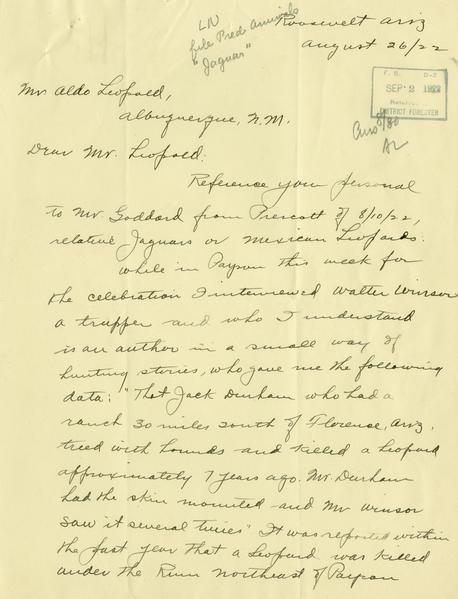 LN
file Pred Animals
"Jaguar"
Roosevelt Ariz
August 26/22
F. S. D-3
SEP 2 1922
DISTRICT FORESTER
Ans 8/30
AL
Mr Aldo Leopold,
Albuquerque, N.M.
Dear Mr. Leopold:
Reference your personal
to Mr. Goddard from Prescott of 8/10/22,
relative Jaguars or Mexican Leopards.
While in Payson this week for
the celebration I interviewed Walter Winsor
a trapper and who I understand
is an author in a small way of
hunting stories, who gave me the following
data: "That Jack Durham who had a
ranch 30 miles south of Florence, Ariz,
treed with hounds and killed a Leopard
approximately 7 years ago. Mr. Durham
had the skin mounted and Mr Winsor
saw it several times" It was reported within
the past year that a Leopard was killed
under the Rim northeast of Payson